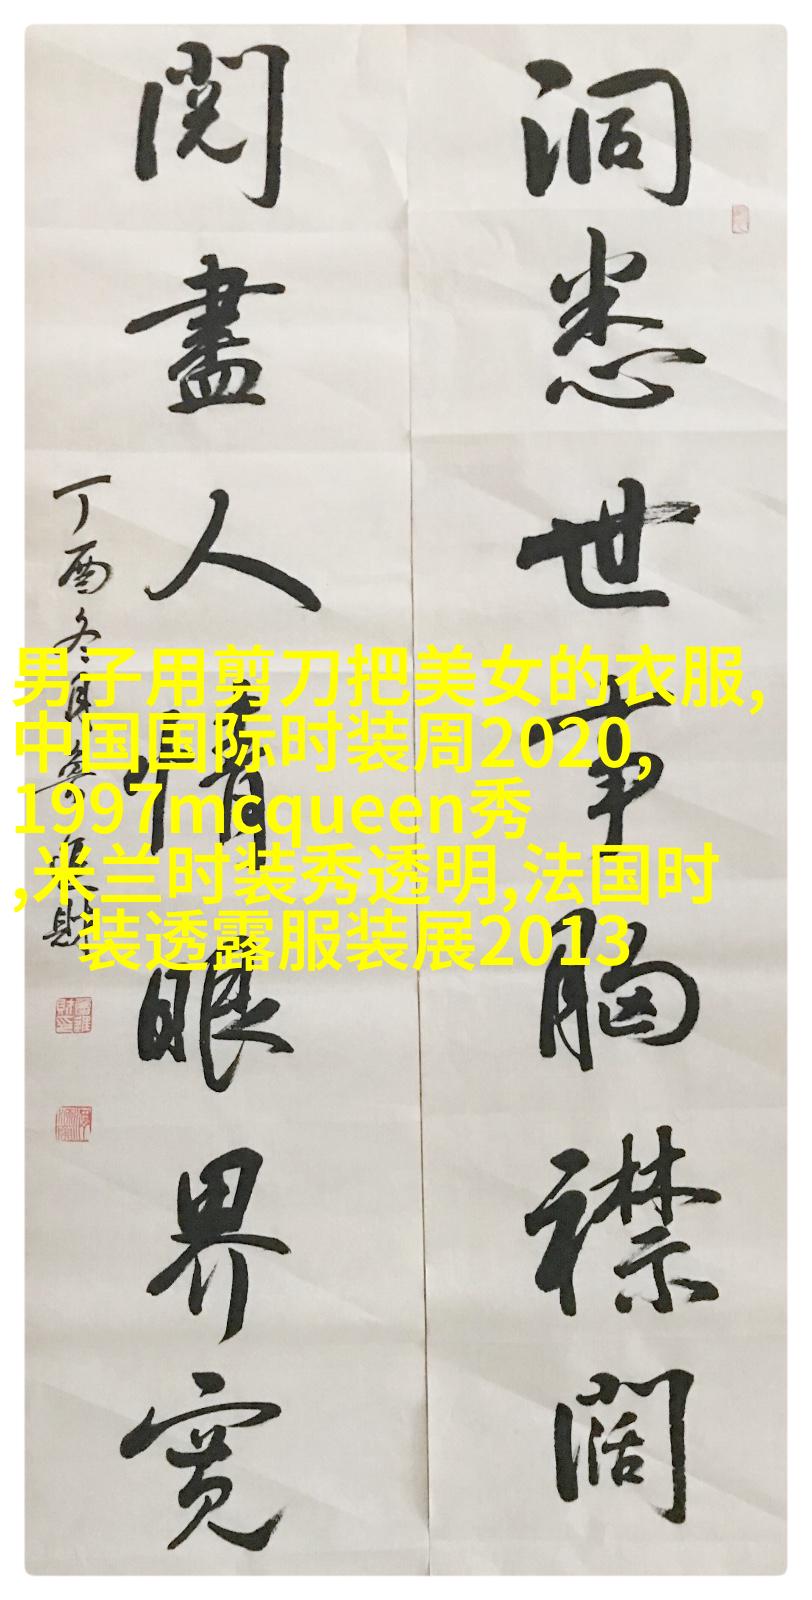 洞悉世事胸襟阔
閱盡人情眼界寬
丁酉冬月
男子用剪刀把美女的衣服,
中国国际时装周2020,
1997mcqueen秀
,米兰时装秀透明,法国时
装透露服装展2013